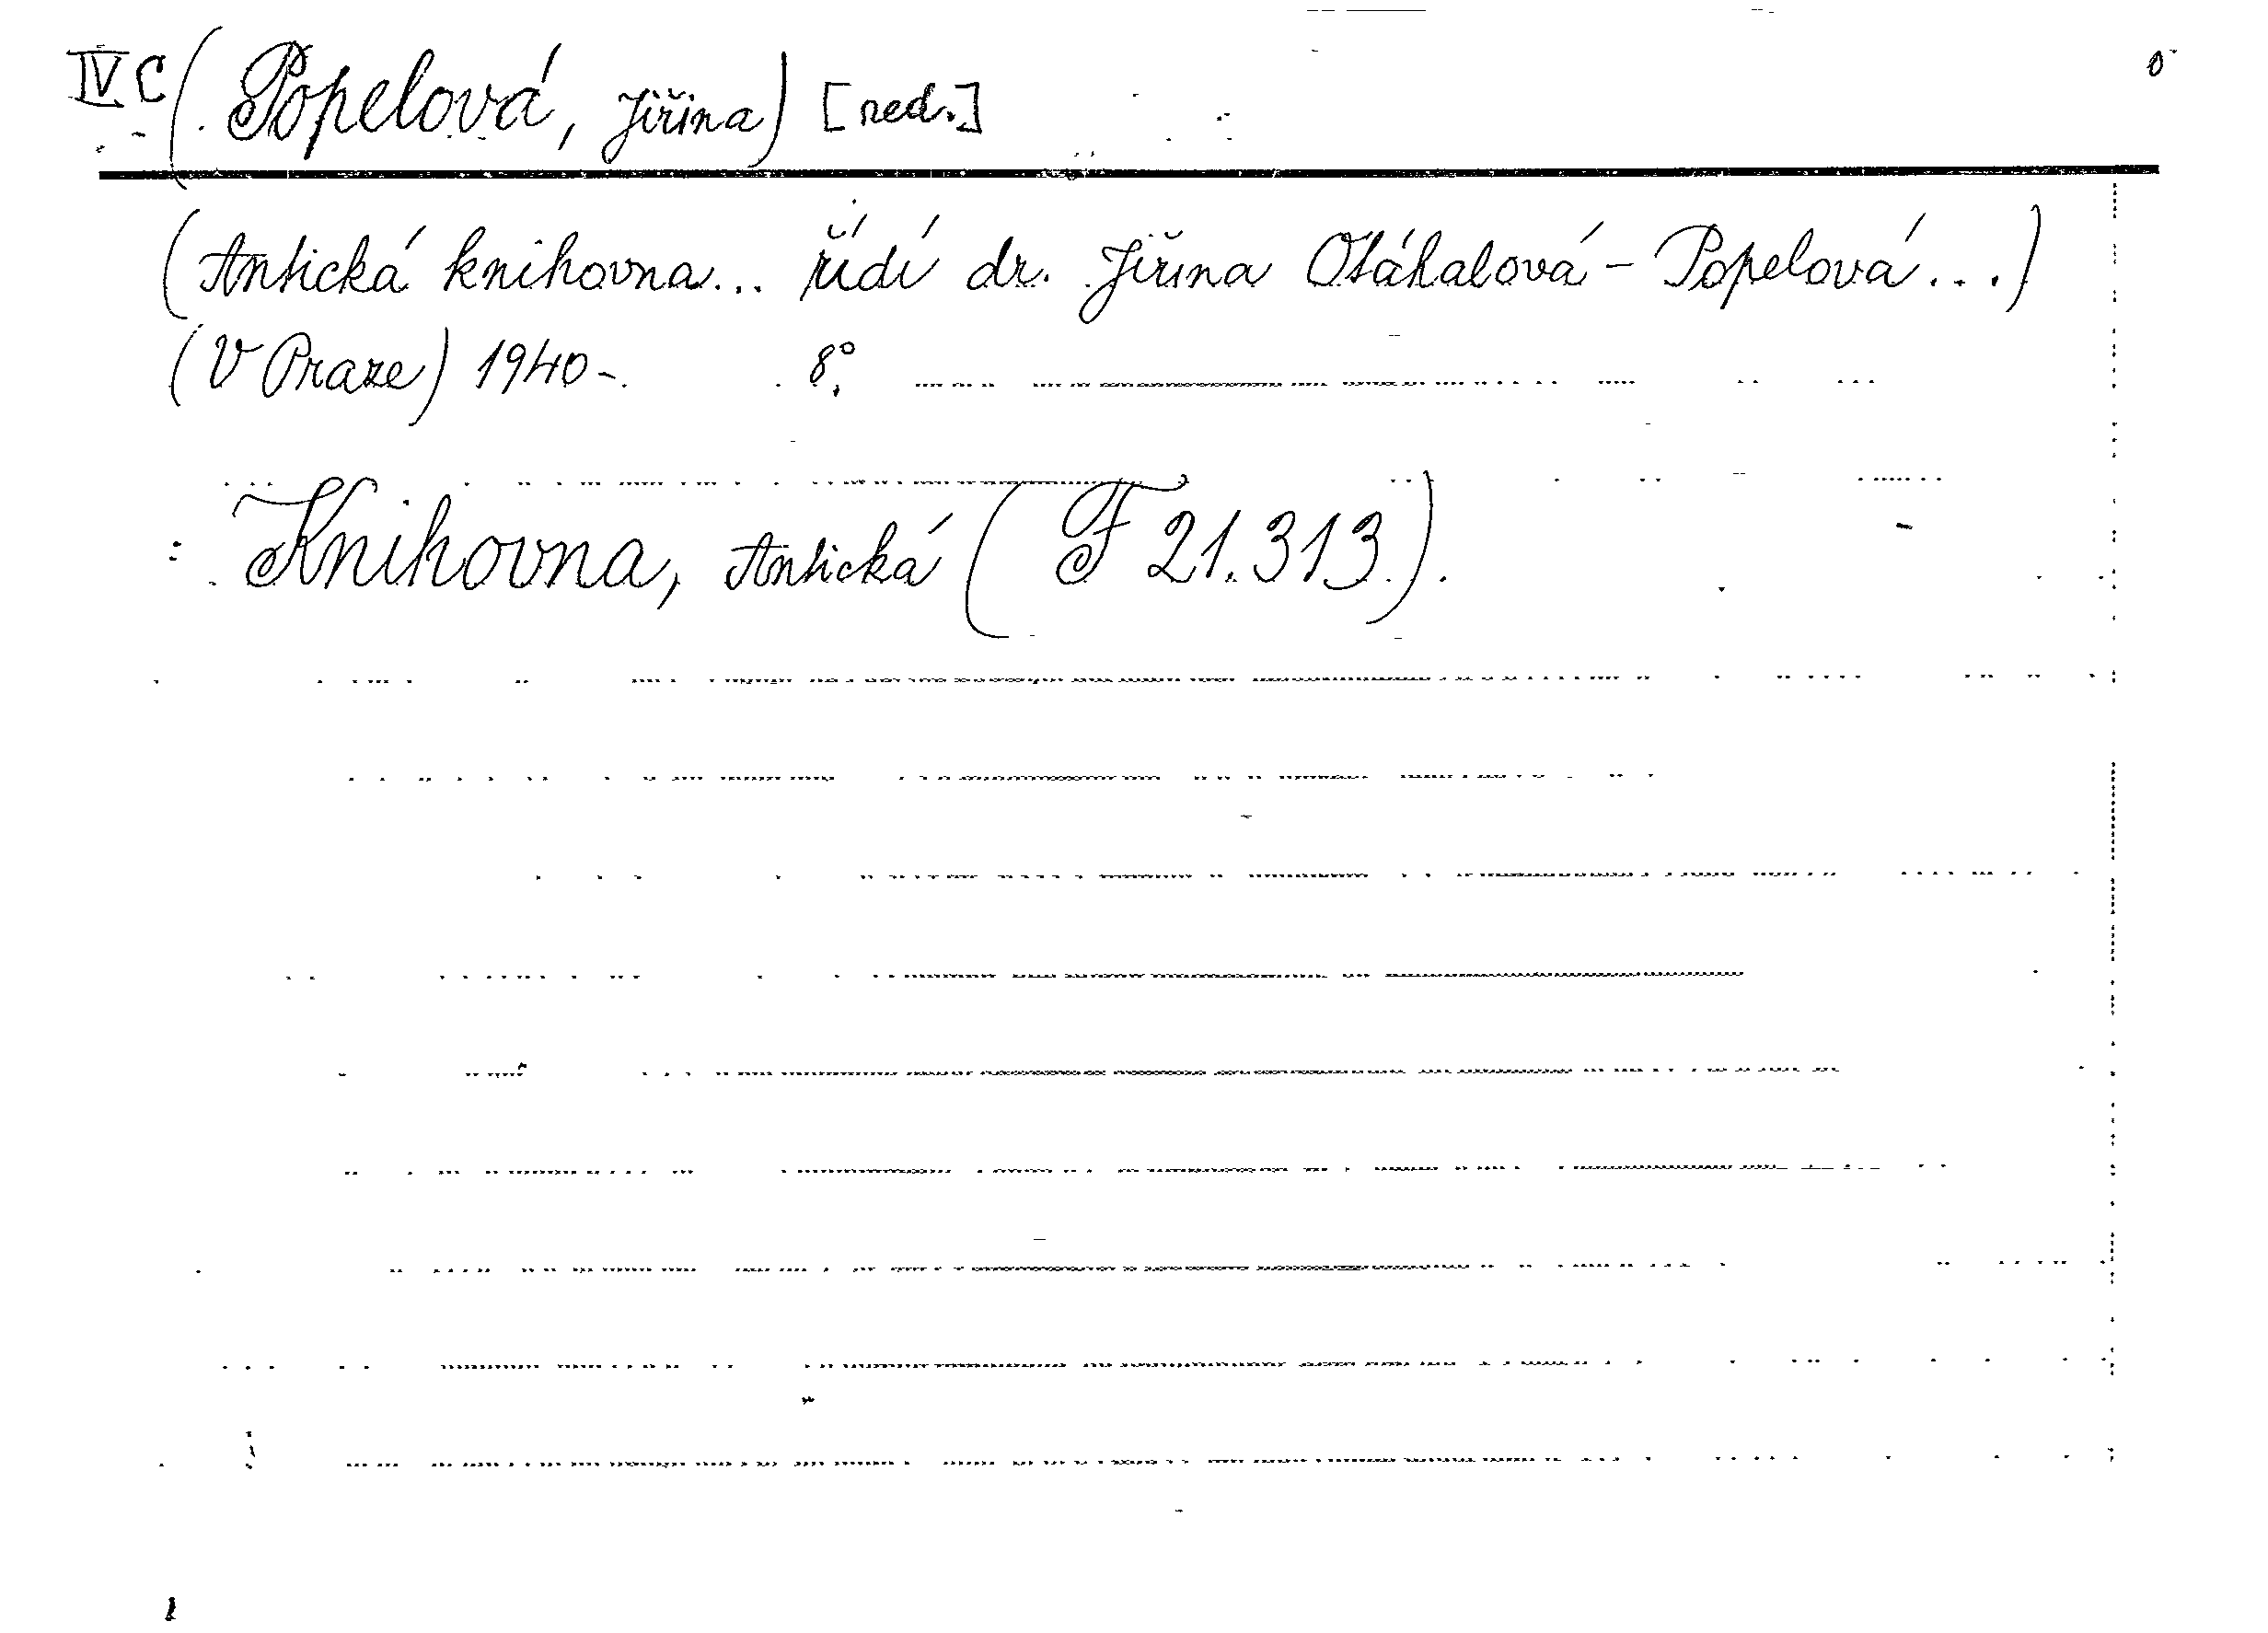 IV C (Popelová, Jiřina) [red.]
(Antická knihovna... řídí dr. Jiřina Otáhalová - Popelová...)
(V Praze) 1940-. 8°.
Knihovna, Antická (F 21.313).